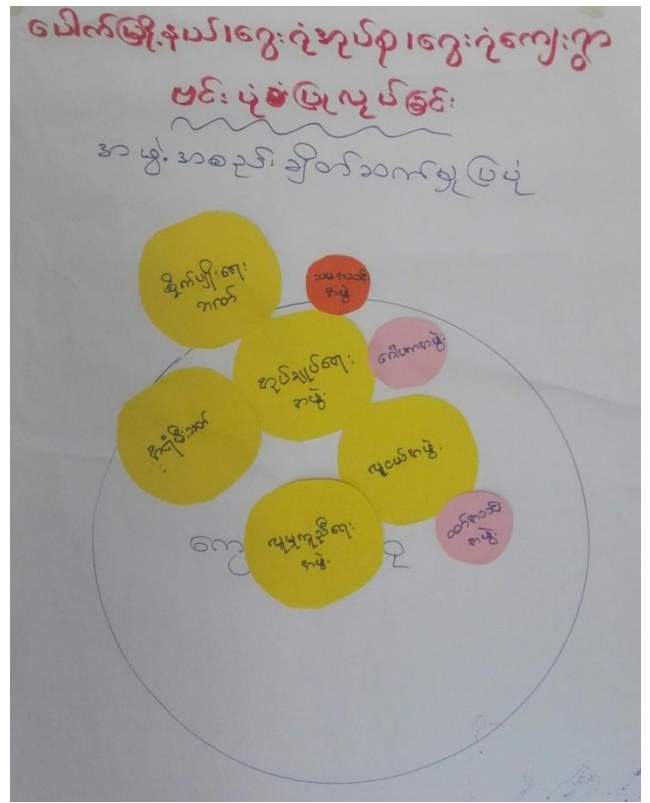 ပေါက်မြို့နယ်၊ ဂွေးဂုံအုပ်စု၊ ဂွေးဂုံကျေးရွာ
ဗင်းပုံစံပြုလုပ်ခြင်း
အဖွဲ့အစည်းချိတ်ဆက်မှုပြပုံ
စိုက်ပျိုးရေး
ဘဏ်
သမဝါယမ
အဖွဲ့
အုပ်ချုပ်ရေး
အဖွဲ့
ဂေါပကအဖွဲ့
အရံမီးသတ်
လူငယ်အဖွဲ့
လူမှုကူညီရေး
အဖွဲ့
အဖွဲ့